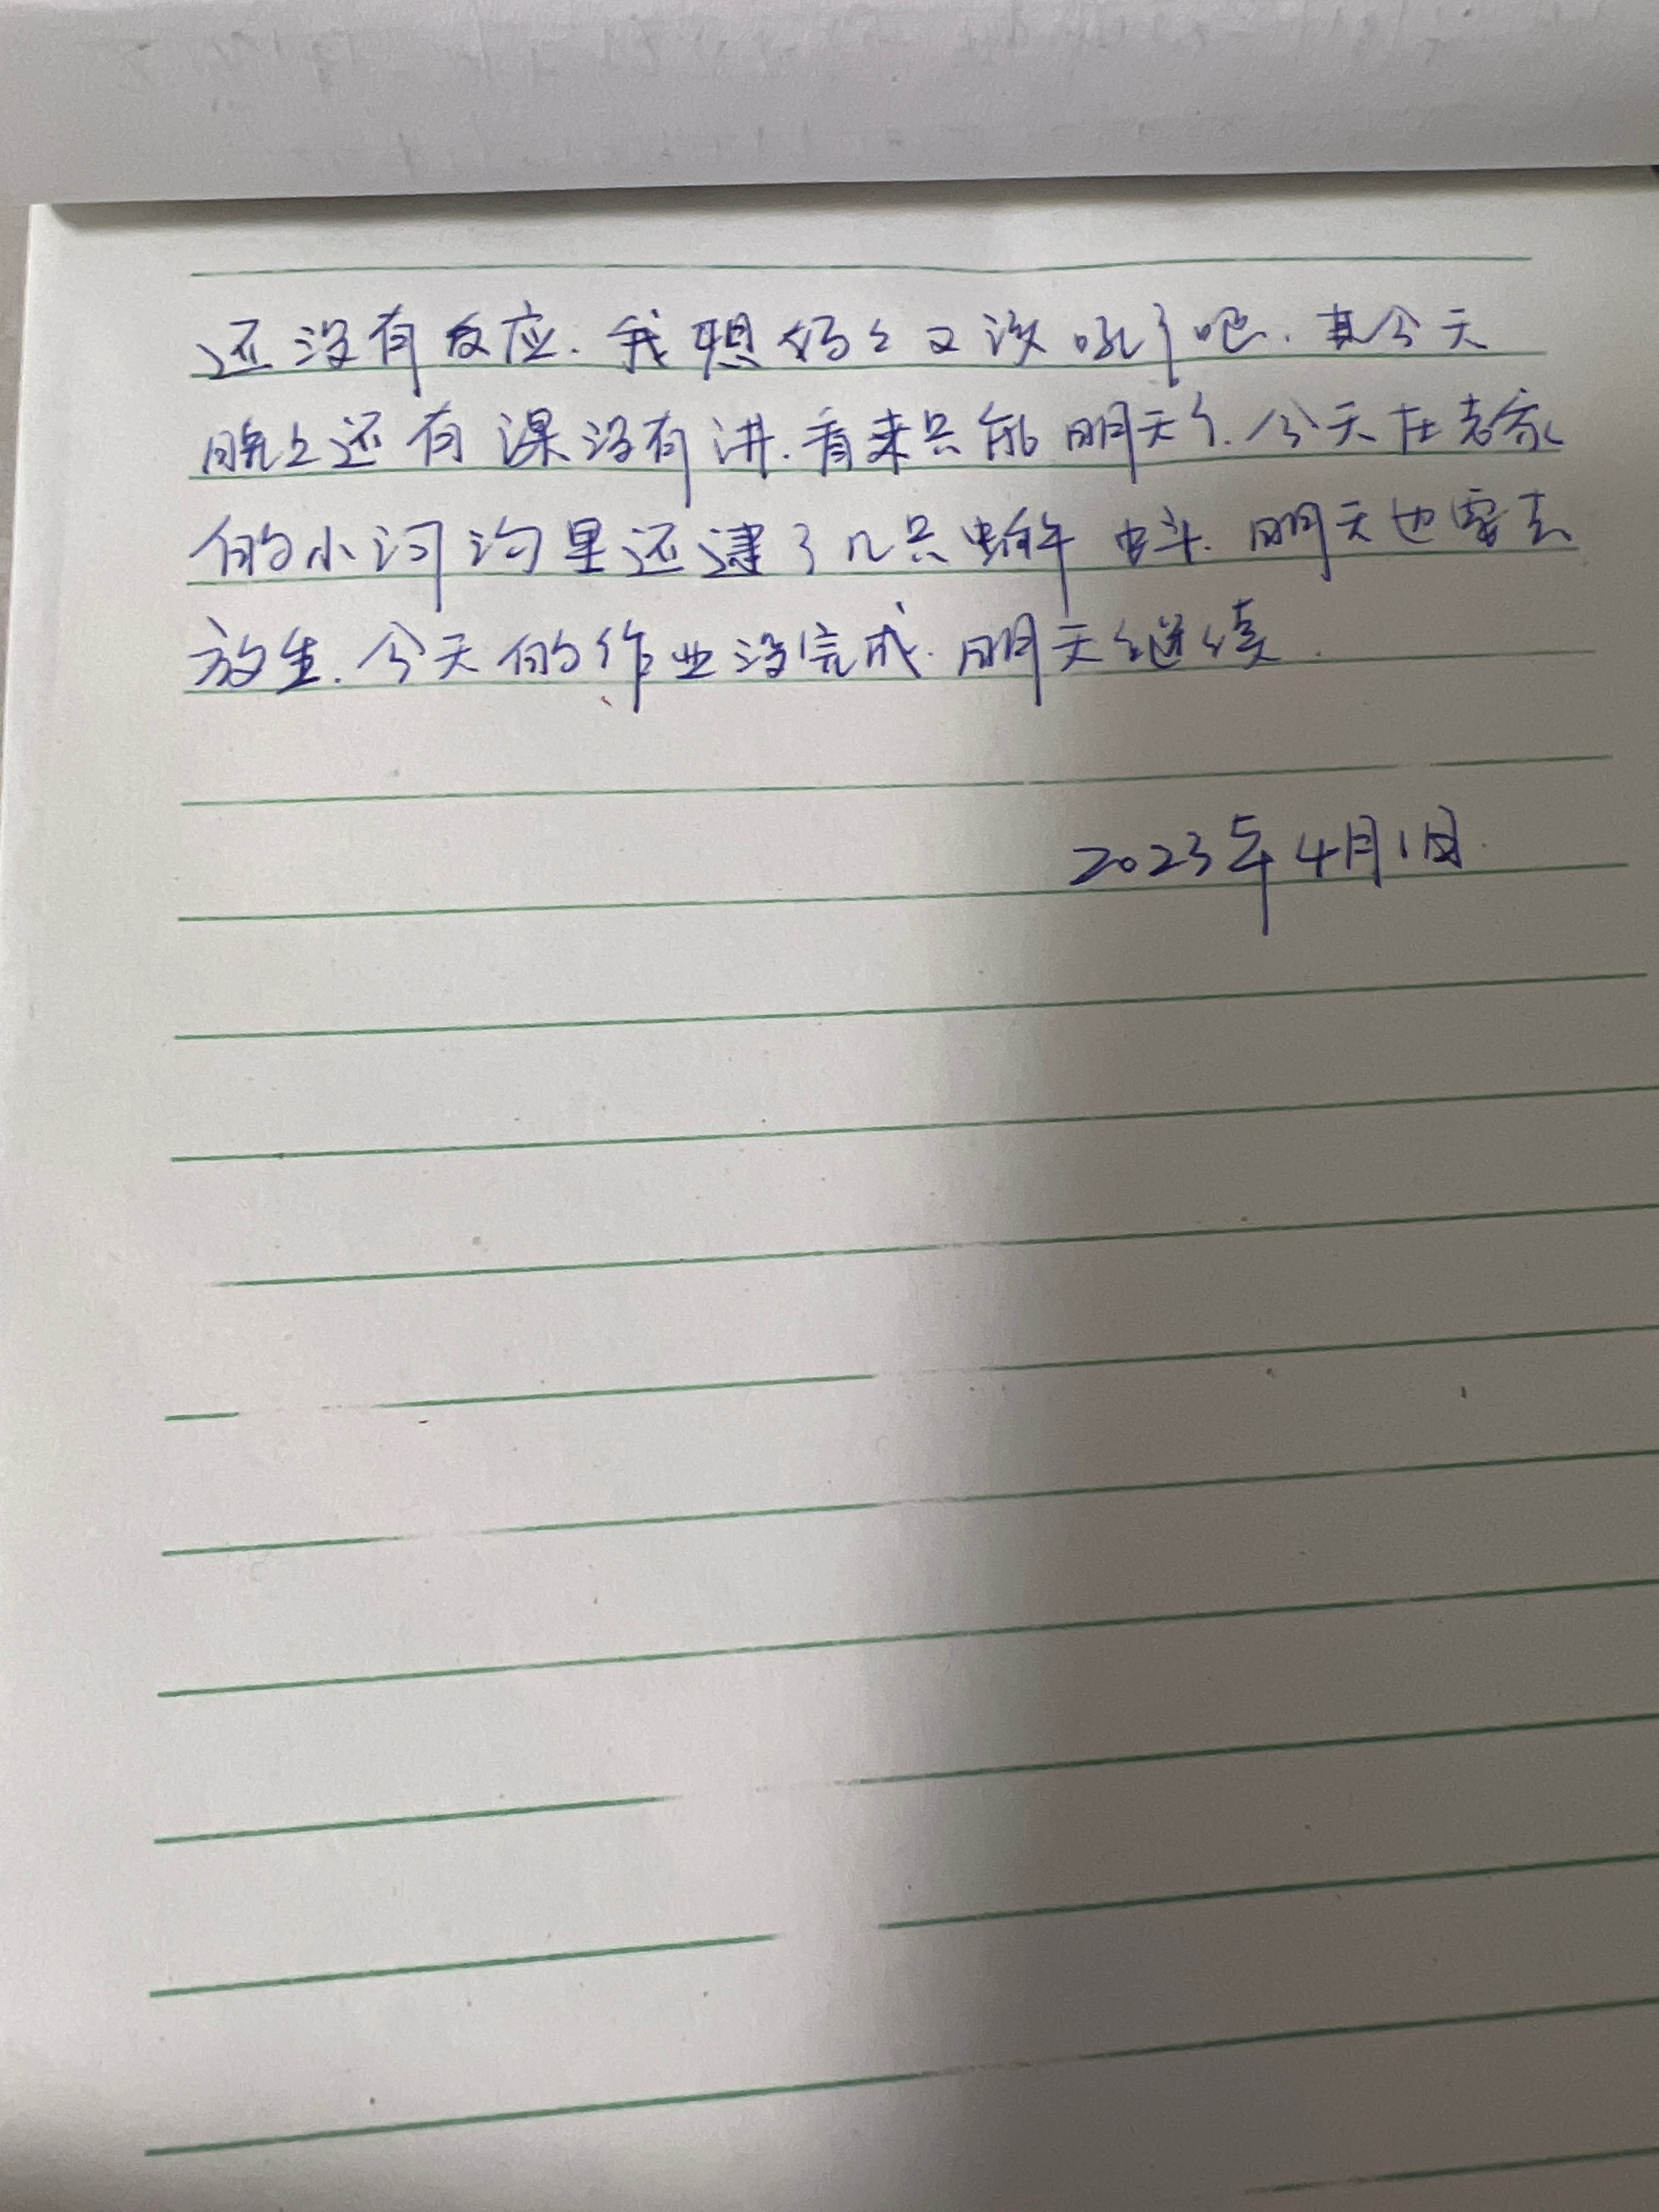 还没有反应.我想妈妈又该吼了吧.其今天
晚上还有课没有讲.看来只能明天了.今天在老家
的小河沟里还逮了几只蝌蚪.明天也要去
放生.今天的作业没完成.明天继续.
2023年4月1日.